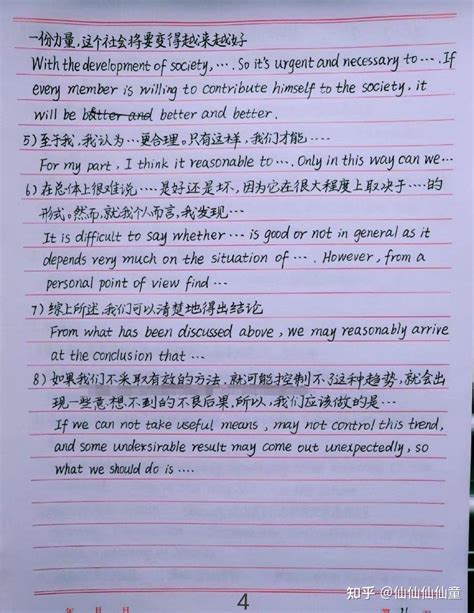 一份力量,这个社会将要变得越来越好
With the development of society, .... So it's urgent and necessary to .... If
every member is willing to contribute himself to the society, it
will be better and better and better.
5) 至于我,我认为...更合理。只有这样,我们才能....
For my part, I think it reasonable to .... Only in this way can we...
6) 在总体上很难说....是好还是坏,因为它在很大程度上取决于....的
形式。然而,就我个人而言,我发现...
It is difficult to say whether .... is good or not in general as it
depends very much on the situation of .... However, from a
personal point of view find ...
7) 综上所述,我们可以清楚地得出结论
From what has been discussed above, we may reasonably arrive
at the conclusion that ...
8) 如果我们不采取有效的方法,就可能控制不了这种趋势,就会出
现一些意想不到的不良后果,所以,我们应该做的是...
If we can not take useful means, may not control this trend,
and some undersirable result may come out unexpectedly, so
what we should do is ....
知乎 @仙仙仙仙童
年 月 日
4